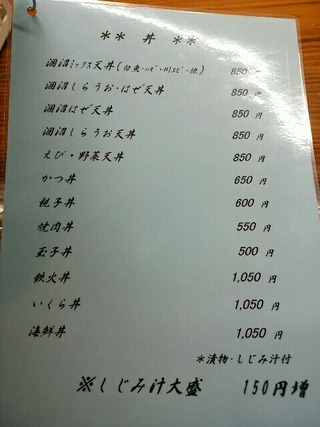 ** 丼 **
涸沼ミックス天丼(白魚・ハゼ・川エビ・他) 850 円
涸沼しらうお・はぜ天丼 850 円
涸沼はぜ天丼 850 円
涸沼しらうお天丼 850 円
えび・野菜天丼 850 円
かつ丼 650 円
親子丼 600 円
焼肉丼 550 円
玉子丼 500 円
鉄火丼 1,050 円
いくら丼 1,050 円
海鮮丼 1,050 円
*漬物・しじみ汁付
※しじみ汁大盛 150円増